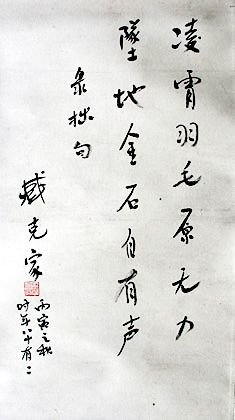 凌霄羽毛原无力
墜地金石自有声
录拙句
臧克家
丙寅之秋
时年八十有二